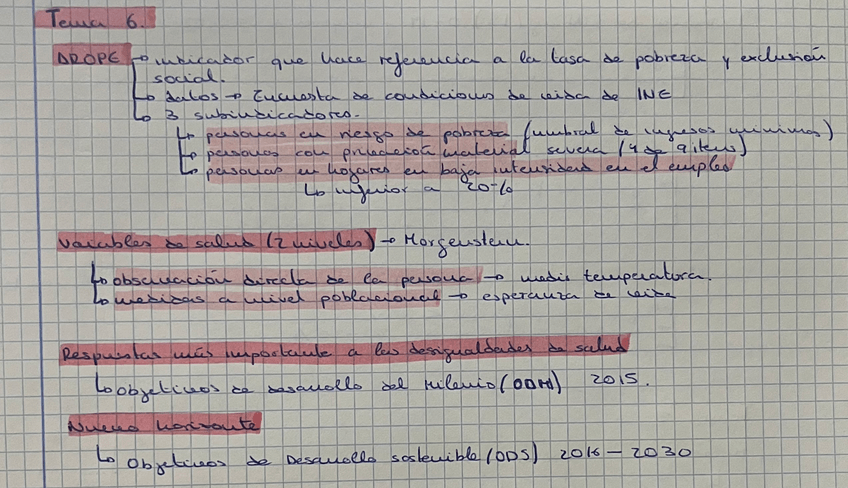 Tema 6.
AROPE → indicador que hace referencia a la tasa de pobreza y exclusión
social.
↳ datos → Encuesta de condiciones de vida de INE
↳ 3 subindicadores.
↳ personas en riesgo de pobreza (umbral de ingresos mínimos)
↳ personas con privación material severa (4 de 9 ítems)
↳ personas en hogares en baja intensidad en el empleo
↳ inferior a 20%
Variables de salud (2 niveles) → Morgenstern.
↳ observación directa de la persona → medir temperatura.
↳ medidas a nivel poblacional → esperanza de vida
Respuestas más importante a las desigualdades de salud
↳ Objetivos de desarrollo del Milenio (ODM) 2015.
Nuevo horizonte
↳ Objetivos de Desarrollo sostenible (ODS) 2016 - 2030